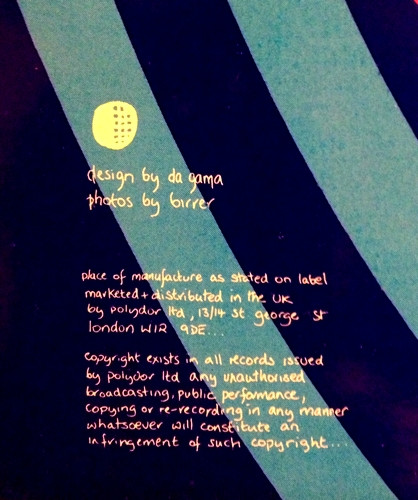 design by da gama
photos by birrer
place of manufacture as stated on label
marketed + distributed in the UK
by polydor ltd, 13/14 st george st
london W1R 9DE...
copyright exists in all records issued
by polydor ltd any unauthorised
broadcasting, public performance,
copying or re-recording in any manner
whatsoever will constitute an
infringement of such copyright...